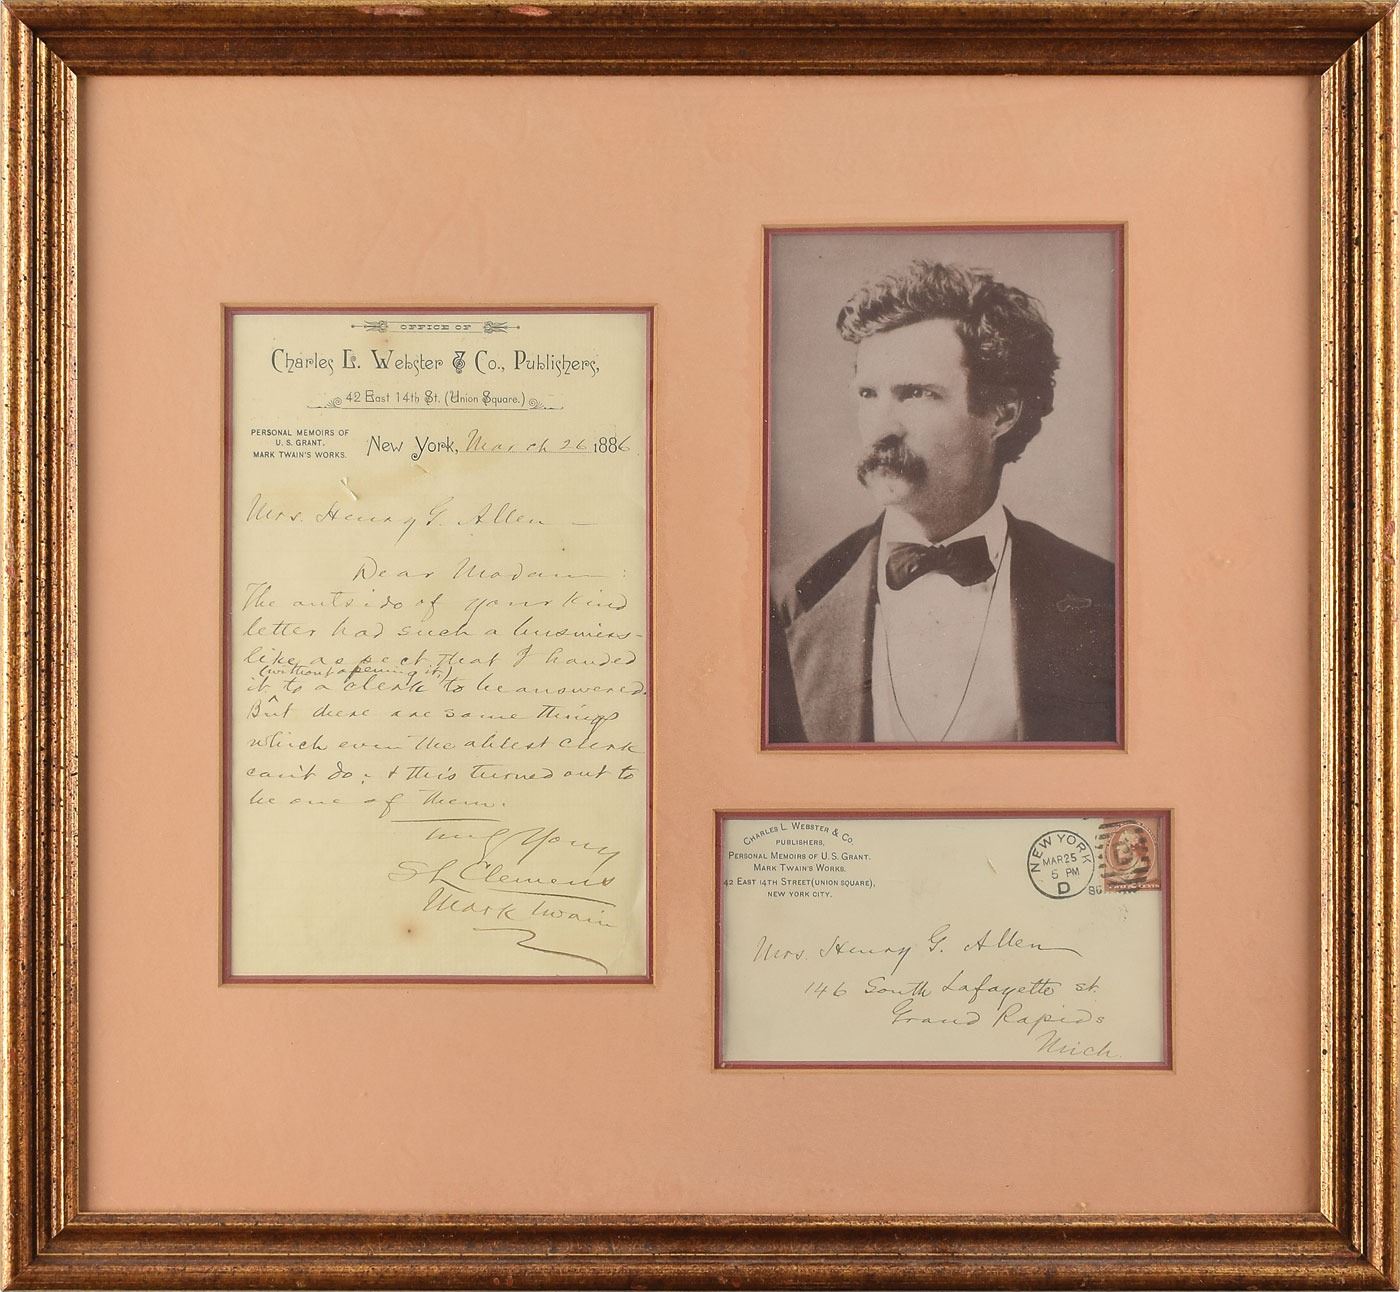 OFFICE OF
Charles L. Webster & Co., Publishers,
42 East 14th St. (Union Square.)
PERSONAL MEMOIRS OF
U. S. GRANT.
MARK TWAIN'S WORKS.
New York, March 26 1886
Mrs. Henry G. Allen —
Dear Madam:
The outside of your kind
letter had such a business-
like aspect that I handed
(without opening it,)
it to a clerk to be answered.
But there are some things
which even the ablest clerk
can't do; & this turned out to
be one of them.
Truly Yours
SL Clemens
Mark Twain
CHARLES L. WEBSTER & CO.
PUBLISHERS,
PERSONAL MEMOIRS OF U. S. GRANT.
MARK TWAIN'S WORKS.
42 EAST 14TH STREET (UNION SQUARE),
NEW YORK CITY.
NEW YORK
MAR 25
5 PM
D
86
Mrs. Henry G. Allen
146 South Lafayette st.
Grand Rapids
Mich.